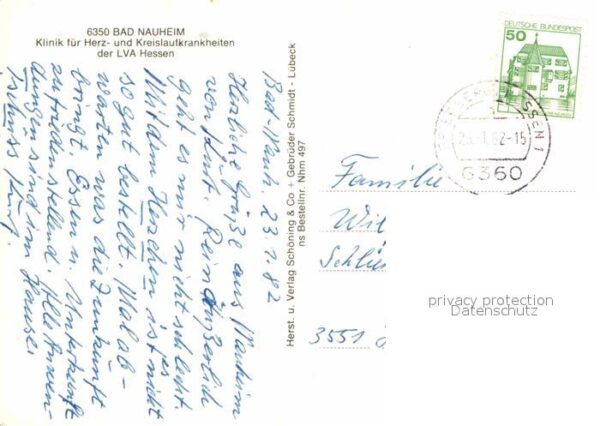 6350 BAD NAUHEIM
Klinik für Herz- und Kreislaufkrankheiten
der LVA Hessen
Bad-Nauh. 23.1.82
Herzliche Grüße aus Nauheim
von Kurt. Rein äußerlich
geht es mir nicht schlecht.
Mit dem Herzchen ist es nicht
so gut bestellt. Mal ab-
warten was die Zunkunft
bringt. Essen u. Unterkunft
zufriedenstellend. Alle Anwen-
dungen sind im Hause.
Tschüss
Herst. u. Verlag Schöning & Co + Gebrüder Schmidt · Lübeck
ns Bestellnr. Nhm 497
DEUTSCHE BUNDESPOST
50
82-15
6360
Familie
Schlü
3551
privacy protection
Datenschutz